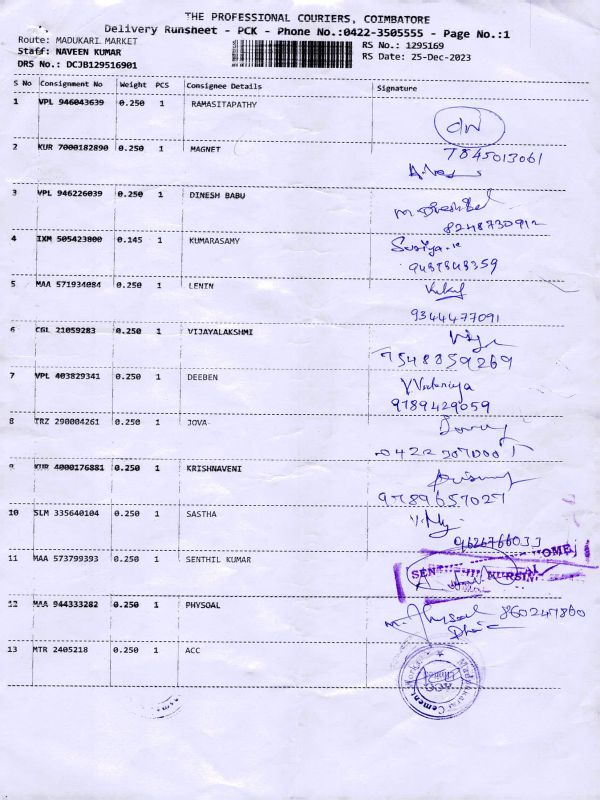 THE PROFESSIONAL COURIERS, COIMBATORE
Delivery Runsheet - PCK - Phone No.:0422-3505555 - Page No.:1
Route: MADUKARI MARKET
Staff: NAVEEN KUMAR
DRS No.: DCJB129516901
RS No.: 1295169
RS Date: 25-Dec-2023
S No Consignment No Weight PCS Consignee Details Signature
1 VPL 946043639 0.250 1 RAMASITAPATHY
7845013061
2 KUR 7000182890 0.250 1 MAGNET
3 VPL 946226039 0.250 1 DINESH BABU
8248730912
4 IXM 505423800 0.145 1 KUMARASAMY
Suriya
9487848359
5 MAA 571934084 0.250 1 LENIN
9344477091
6 CGL 21059283 0.250 1 VIJAYALAKSHMI
7548859269
7 VPL 403829341 0.250 1 DEEBEN
9789429059
8 TRZ 290004261 0.250 1 JOVA
9 KUR 4000176881 0.250 1 KRISHNAVENI
9789657027
10 SLM 335640104 0.250 1 SASTHA
9626766033
11 MAA 573799393 0.250 1 SENTHIL KUMAR
12 MAA 944333282 0.250 1 PHYSOAL
M. Physoal 860247860
13 MTR 2405218 0.250 1 ACC
Madukkarai Cement Works
ACC